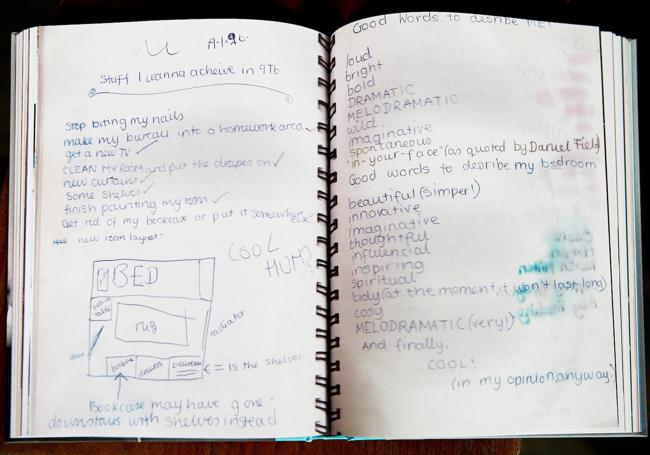 A.1.96.
Stuff I wanna acheive in 9T6
Stop biting my nails
make my bureau into a homework area
get a new TV ✓
CLEAN MY ROOM and put the drapes on ✓
new curtains ✓
Some shelves ✓
finish painting my room ✓
Get rid of my bookcase or put it somewhere else
new room layout:
COOL
HUH?
BED
rug
radiator
door
bookcase
drawers
bureau
= IS the shelves.
Bookcase may have gone
downstairs with shelves instead
Good words to desribe ME!
loud
bright
bold
DRAMATIC
MELODRAMATIC
wild
imaginative
spontaneous
"in-your-face" (as quoted by Daniel Field)
Good words to desribe my bedroom
beautiful (simper!)
innovative
imaginative
thoughtful
influencial
inspiring
spiritual
tidy (at the moment, it won't last long)
cosy
MELODRAMATIC (very!)
And finally,
COOL!
(in my opinion, anyway.)